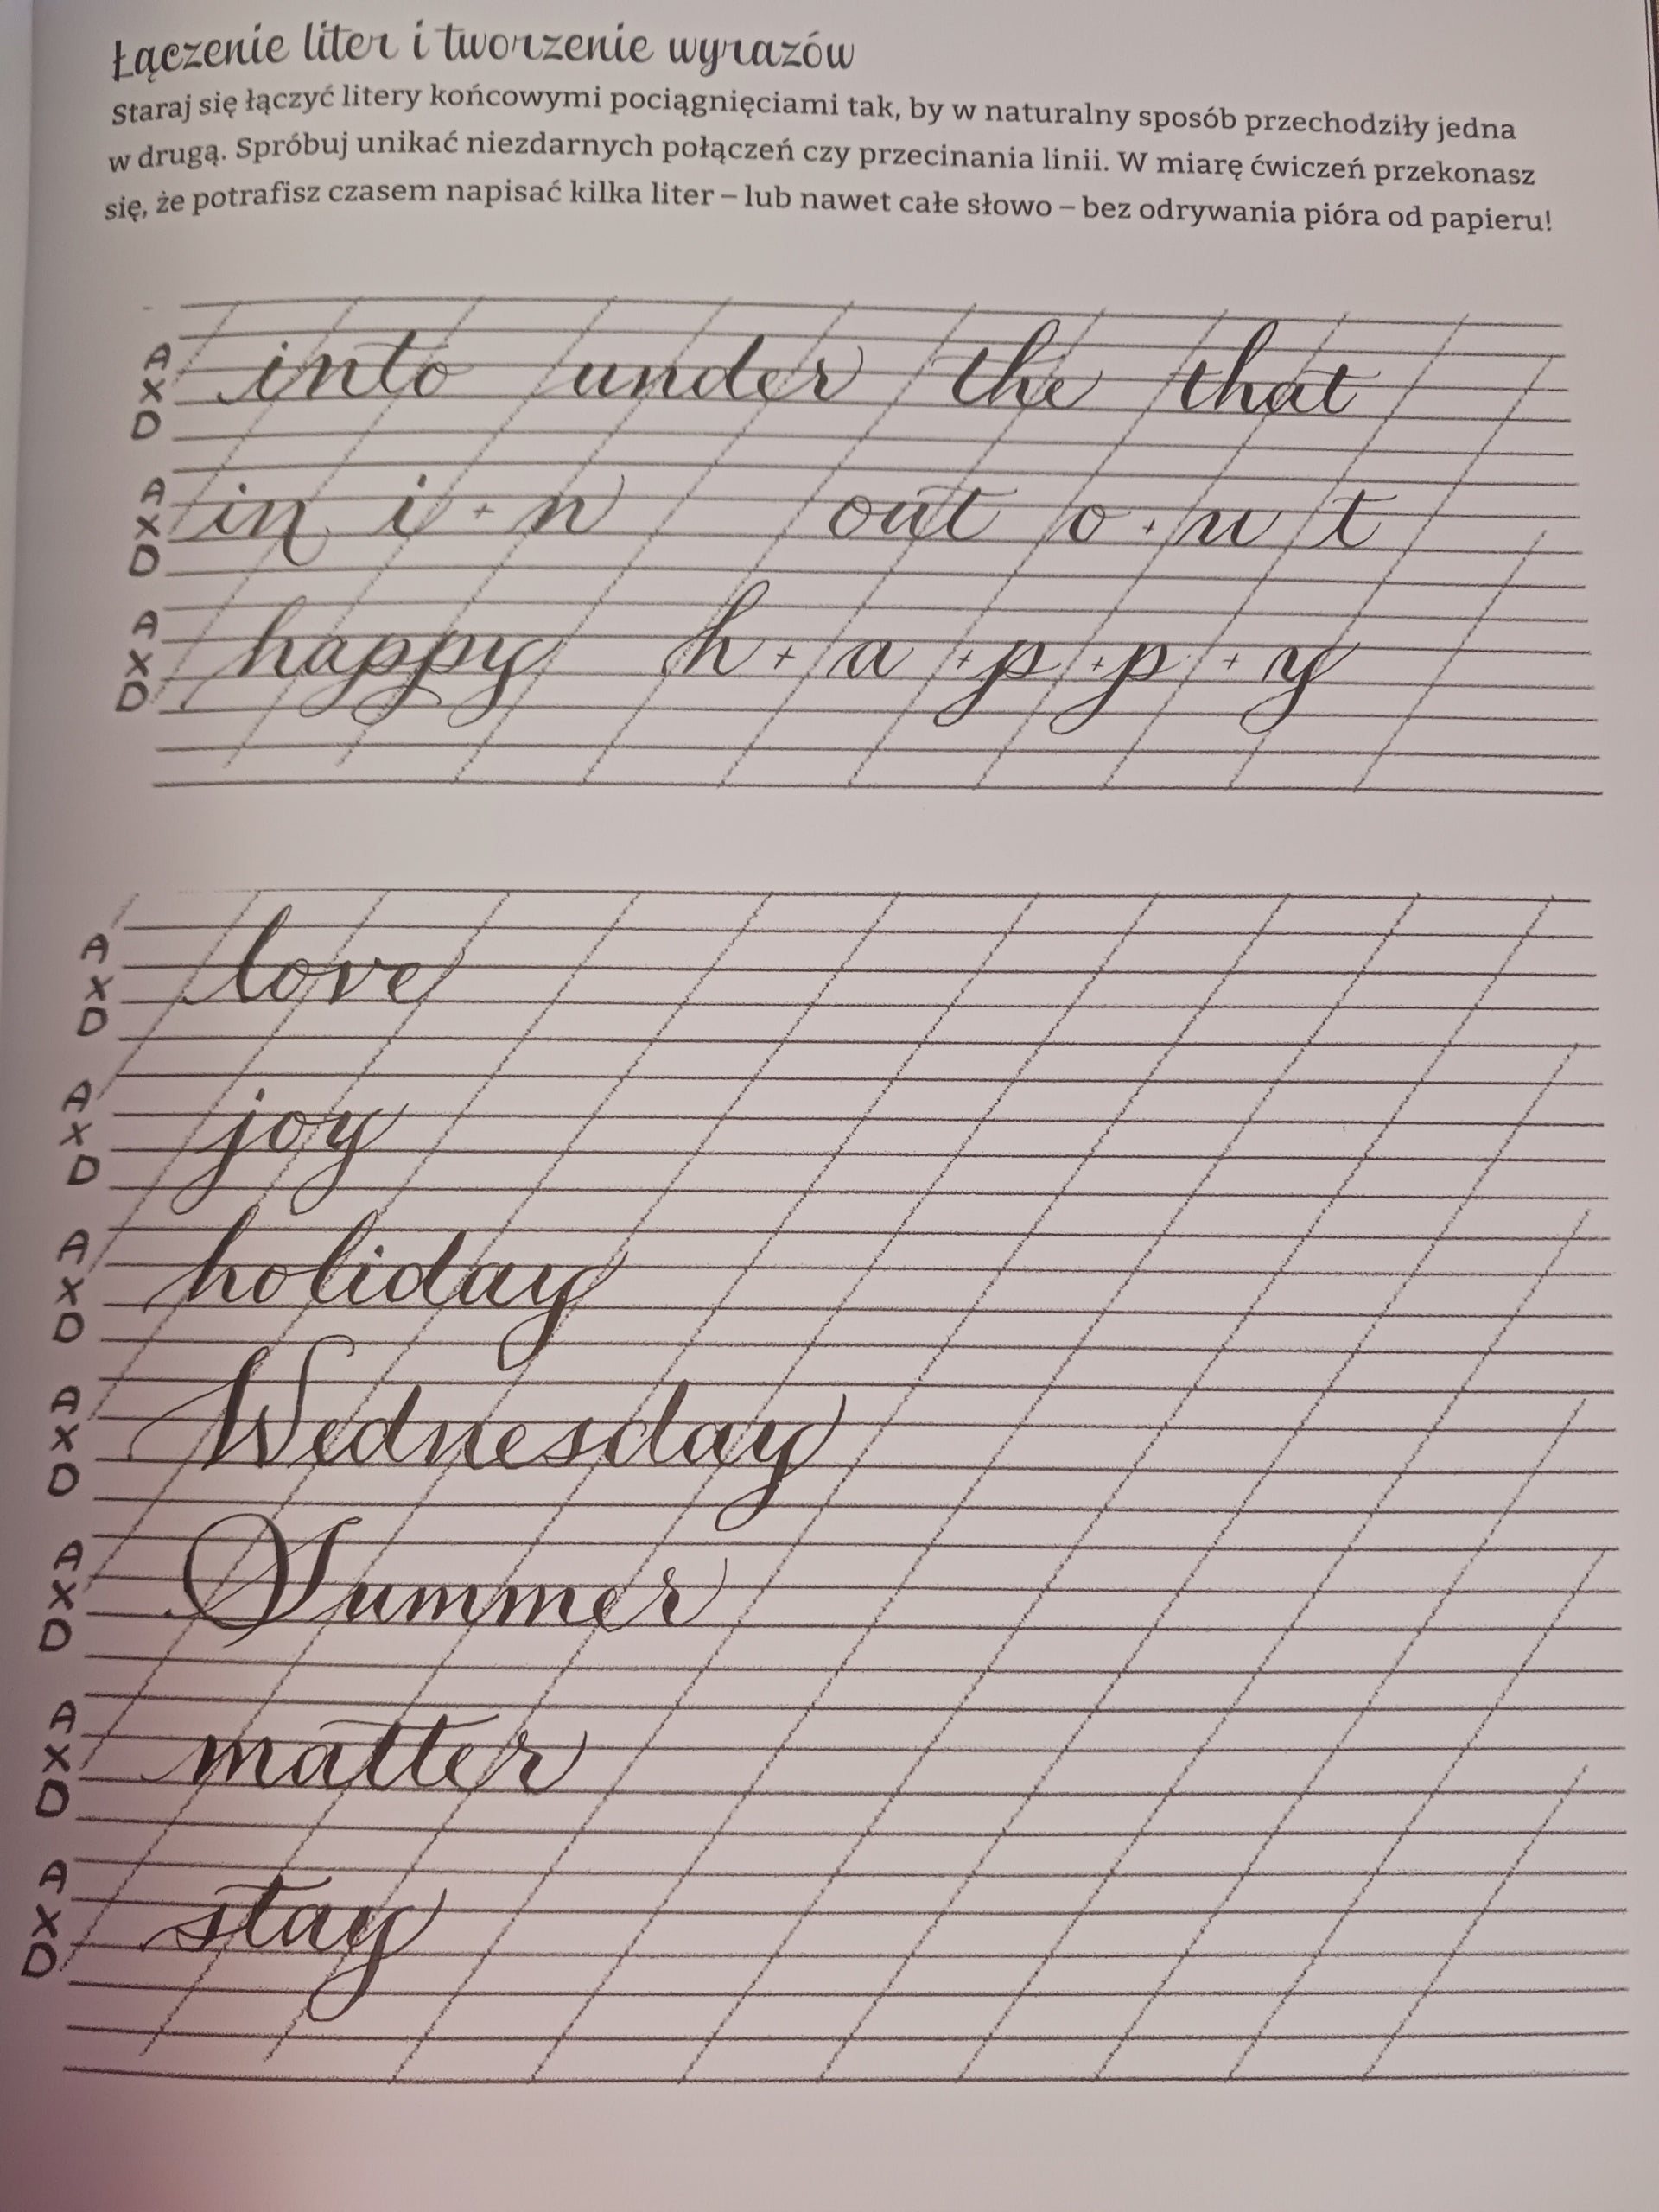 Łączenie liter i tworzenie wyrazów
Staraj się łączyć litery końcowymi pociągnięciami tak, by w naturalny sposób przechodziły jedna
w drugą. Spróbuj unikać niezdarnych połączeń czy przecinania linii. W miarę ćwiczeń przekonasz
się, że potrafisz czasem napisać kilka liter – lub nawet całe słowo – bez odrywania pióra od papieru!
A
into under the that
X
D
A
in i + n out o + u t
X
D
A
happy h + a + p + p + y
X
D
A
love
X
D
A
joy
X
D
A
holiday
X
D
A
Wednesday
X
D
A
Summer
X
D
A
matter
X
D
A
stay
X
D